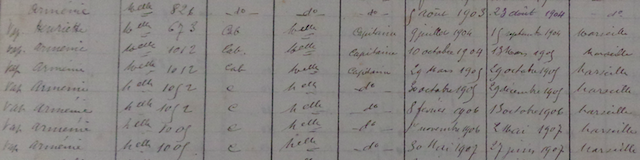 Arménie Nelle 826 do do do 5 août 1903 23 août 1904 do
Vap. Henriette Nelle 673 Cab Nelle Capitaine 9 juillet 1904 15 septembre 1904 Marseille
Vap Arménie Nelle 1012 Cab. Nelle Capitaine 10 octobre 1904 13 Mars 1905 Marseille
Vap. Arménie Nelle 1012 Cab Nelle Capitaine 29 Mars 1905 29 octobre 1905 Marseille
Vap Arménie Nelle 1052 c Nelle do 30 octobre 1905 29 décembre 1905 Marseille
Vap. Arménie Nelle 1052 c Nelle do 8 février 1906 13 octobre 1906 Marseille
Vap Arménie Nelle 1005 c Nelle do novembre 1906 2 Mai 1907 Marseille
Vap. Arménie Nelle 1005 c Nelle do 30 Mai 1907 27 juin 1907 Marseille